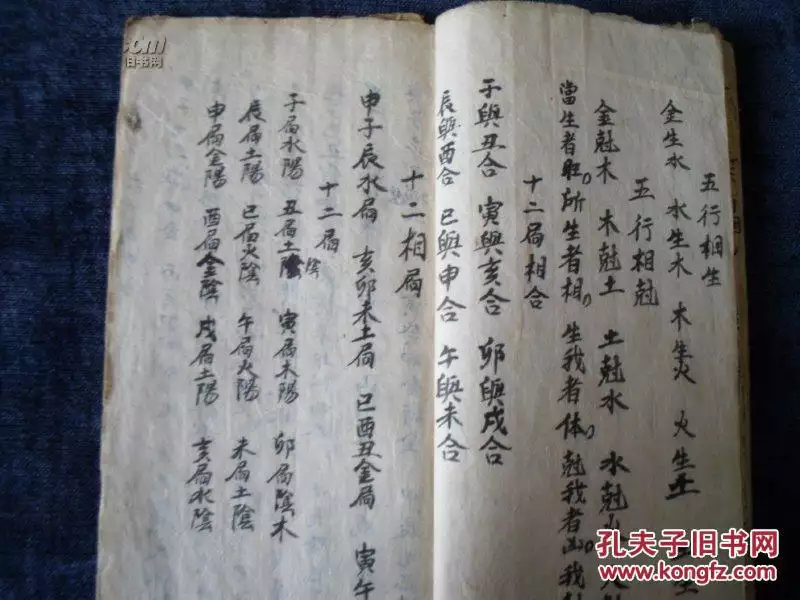 五行相生
金生水 水生木 木生火 火生土
五行相尅
金尅木 木尅土 土尅水 水尅火
當生者旺 所生者相 生我者体 尅我者凶 我尅
十二局相合
子與丑合 寅與亥合 卯與戌合
辰與酉合 巳與申合 午與未合
十二相局
申子辰水局 亥卯未土局 巳酉丑金局 寅午
十二局
子局水陽 丑局土陰 寅局木陽 卯局陰木
辰局土陽 巳局火陰 午局火陽 未局土陰
申局金陽 酉局金陰 戌局土陽 亥局水陰
com
旧书网
孔夫子旧书网
www.kongfz.com